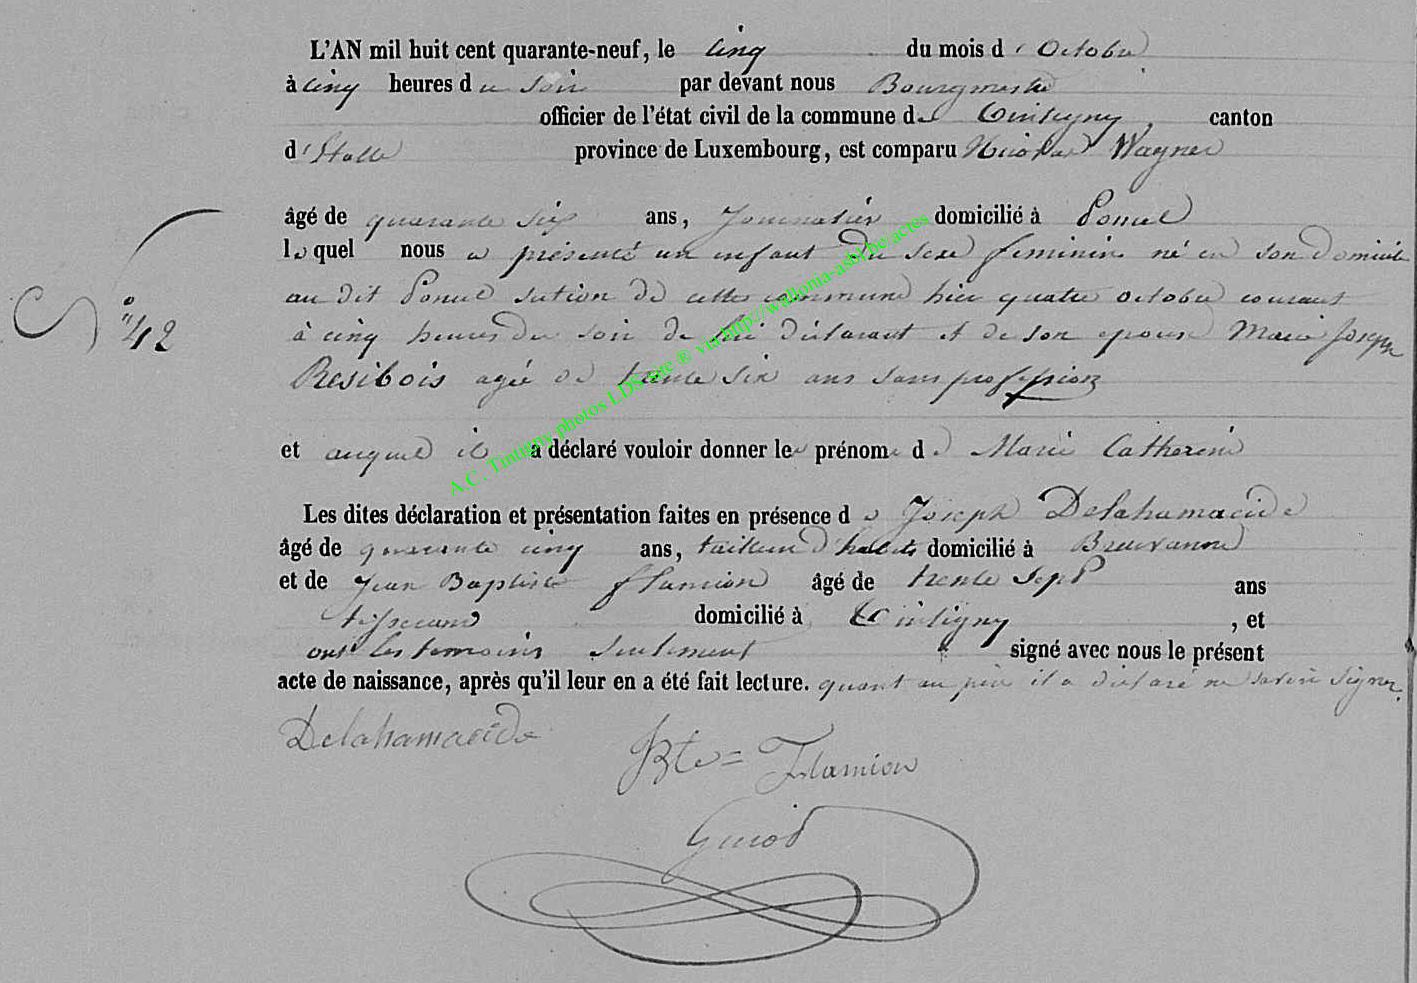 L'AN mil huit cent quarante-neuf, le cinq du mois d' Octobre
à cinq heures du soir par devant nous Bourgmestre
officier de l'état civil de la commune de Tintigny, canton
d' Etalle province de Luxembourg, est comparu Nicolas Wagner
âgé de quarante six ans, Journalier domicilié à Poncel
lequel nous a présenté un enfant du sexe feminin né en son domicile
au dit Poncel section de cette commune hier quatre octobre courant
à cinq heures du soir de lui déclarant et de son epouse Marie Joseph
N° 42
Resibois agée de trente six ans sans profession
et auquel il a déclaré vouloir donner les prénoms de Marie Catherine
Les dites déclaration et présentation faites en présence de Joseph Delahamaeide
âgé de quarante cinq ans, tailleur d'habits domicilié à Breuvanne
et de Jean Baptiste flamion âgé de trente Sept ans
tisserand domicilié à Tintigny, et
ont les temoins seulement signé avec nous le présent
acte de naissance, après qu'il leur en a été fait lecture. quant au père il a déclaré ne savoir signer.
Delahamaeide
JBte = Flamion
A.C. Tintigny photos LDS site ® via http://wallonia-asbl.be actes